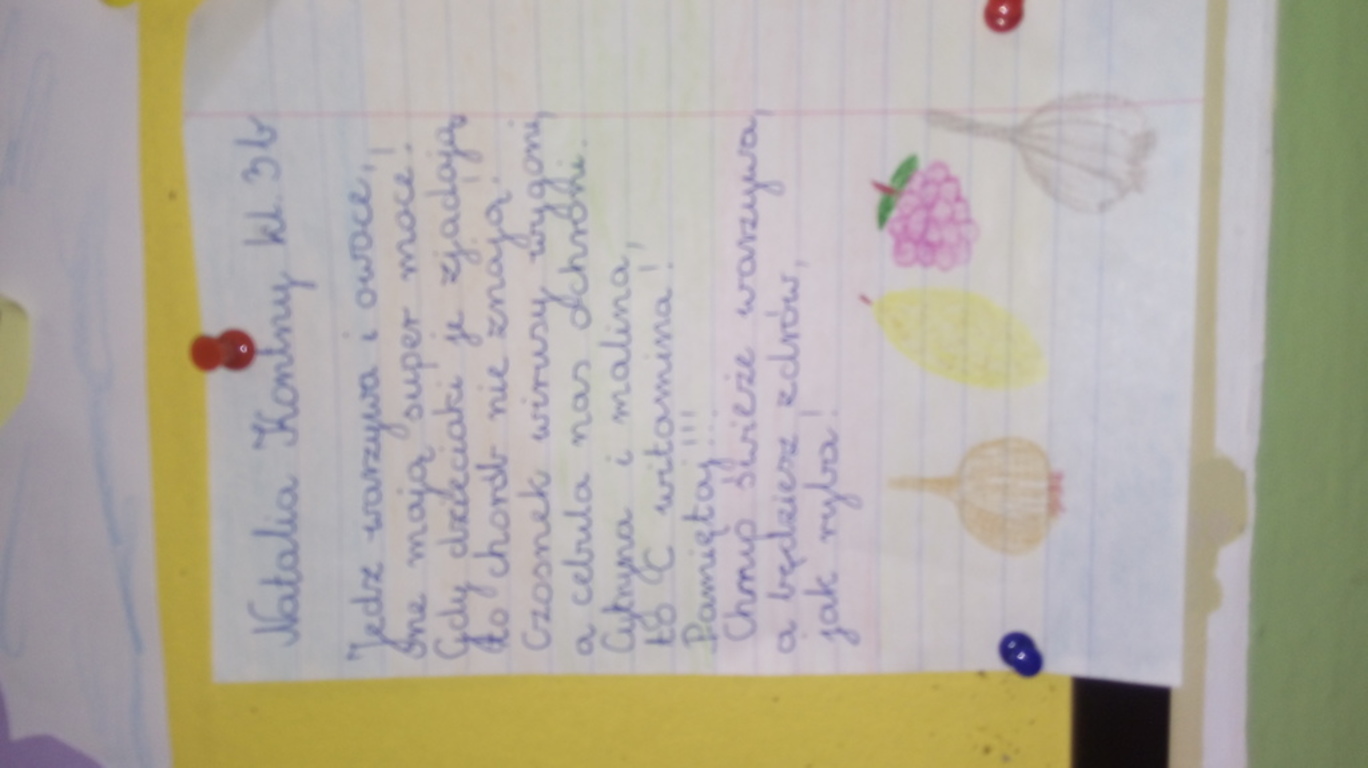 Natalia Kontny kl. 3b
Jedz warzywa i owoce,
One mają super moce!
Gdy dzieciaki je zjadają,
to chorób nie znają.
Czosnek wirusy wygoni,
a cebula nas ochroni.
Cytryna i malina,
to C witamina!
Pamiętaj!!!
Chrup świeże warzywa,
a będziesz zdrów,
jak ryba!